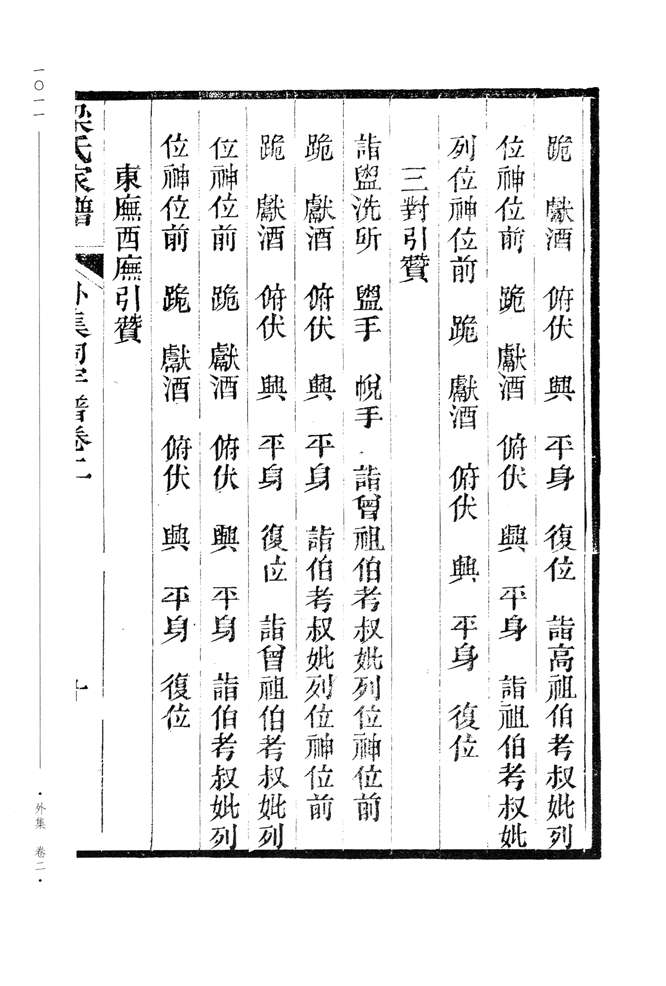 跪　獻酒　俯伏　興　平身　復位　詣高祖伯考叔妣列
位神位前　跪　獻酒　俯伏　興　平身　詣祖伯考叔妣
列位神位前　跪　獻酒　俯伏　興　平身　復位
三對引贊
詣盥洗所　盥手　帨手　詣曾祖伯考叔妣列位神位前
跪　獻酒　俯伏　興　平身　詣伯考叔妣列位神位前
跪　獻酒　俯伏　興　平身　復位　詣曾祖伯考叔妣列
位神位前　跪　獻酒　俯伏　興　平身　詣伯考叔妣列
位神位前　跪　獻酒　俯伏　興　平身　復位
東廡西廡引贊
梁氏家譜　外集祠宇譜卷二　十
一〇一一
·外集　卷二·